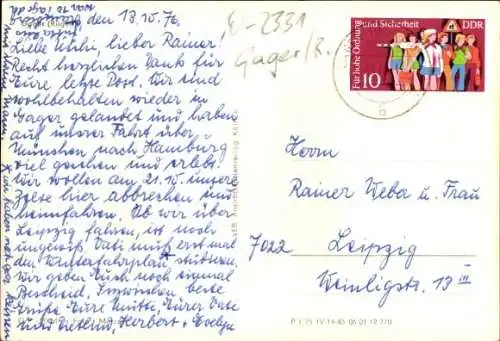 Gager (Rügen)
Gager, den 18.10.76
Liebe Uschi, lieber Rainer!
Recht herzlichen Dank für
Eure letzte Post. Wir sind
wohlbehalten wieder in
Gager gelandet und haben
auf unserer Fahrt über
München nach Hamburg
viel gesehen und erlebt.
Wir wollen am 21.10. unsere
Zelte hier abbrechen und
heimfahren. Ob wir über
Leipzig fahren, ist noch
ungewiß. Vati muß erst mal
den Winterfahrplan studieren.
Wir geben Euch noch einmal
Bescheid. Inzwischen beste
Grüße Eure Mutti, Euer Vati
und Herbert + Evelyn
D-2331
Gager/R.
Für hohe Ordnung und Sicherheit
DDR
10
b
Herrn
Rainer Weber u. Frau
7022 Leipzig
Weinligstr. 19 III
P 1/75 IV-14-45 06 01 12 770